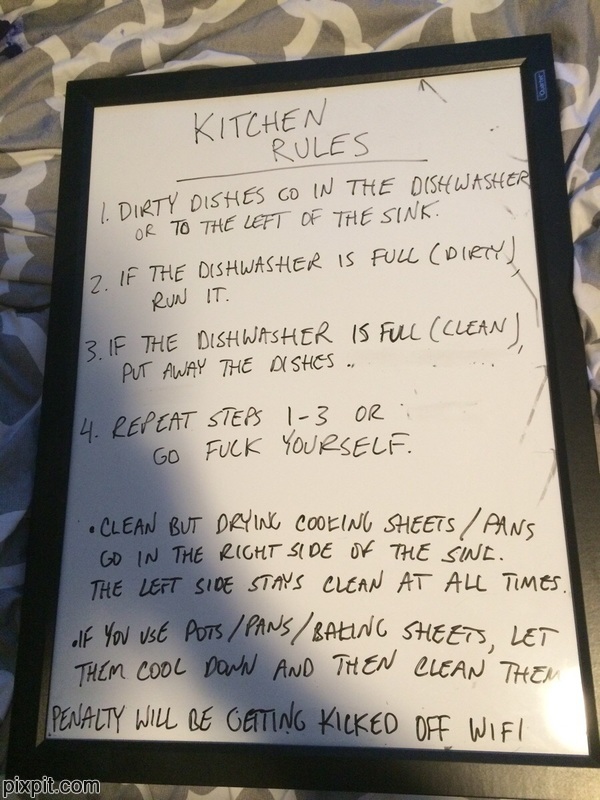 KITCHEN
RULES
1. DIRTY DISHES GO IN THE DISHWASHER
OR TO THE LEFT OF THE SINK.
2. IF THE DISHWASHER IS FULL (DIRTY),
RUN IT.
3. IF THE DISHWASHER IS FULL (CLEAN),
PUT AWAY THE DISHES..
4. REPEAT STEPS 1-3 OR
GO FUCK YOURSELF.
• CLEAN BUT DRYING COOKING SHEETS/PANS
GO IN THE RIGHT SIDE OF THE SINK.
THE LEFT SIDE STAYS CLEAN AT ALL TIMES.
• IF YOU USE POTS/PANS/BAKING SHEETS, LET
THEM COOL DOWN AND THEN CLEAN THEM
PENALTY WILL BE GETTING KICKED OFF WIFI
pixpit.com